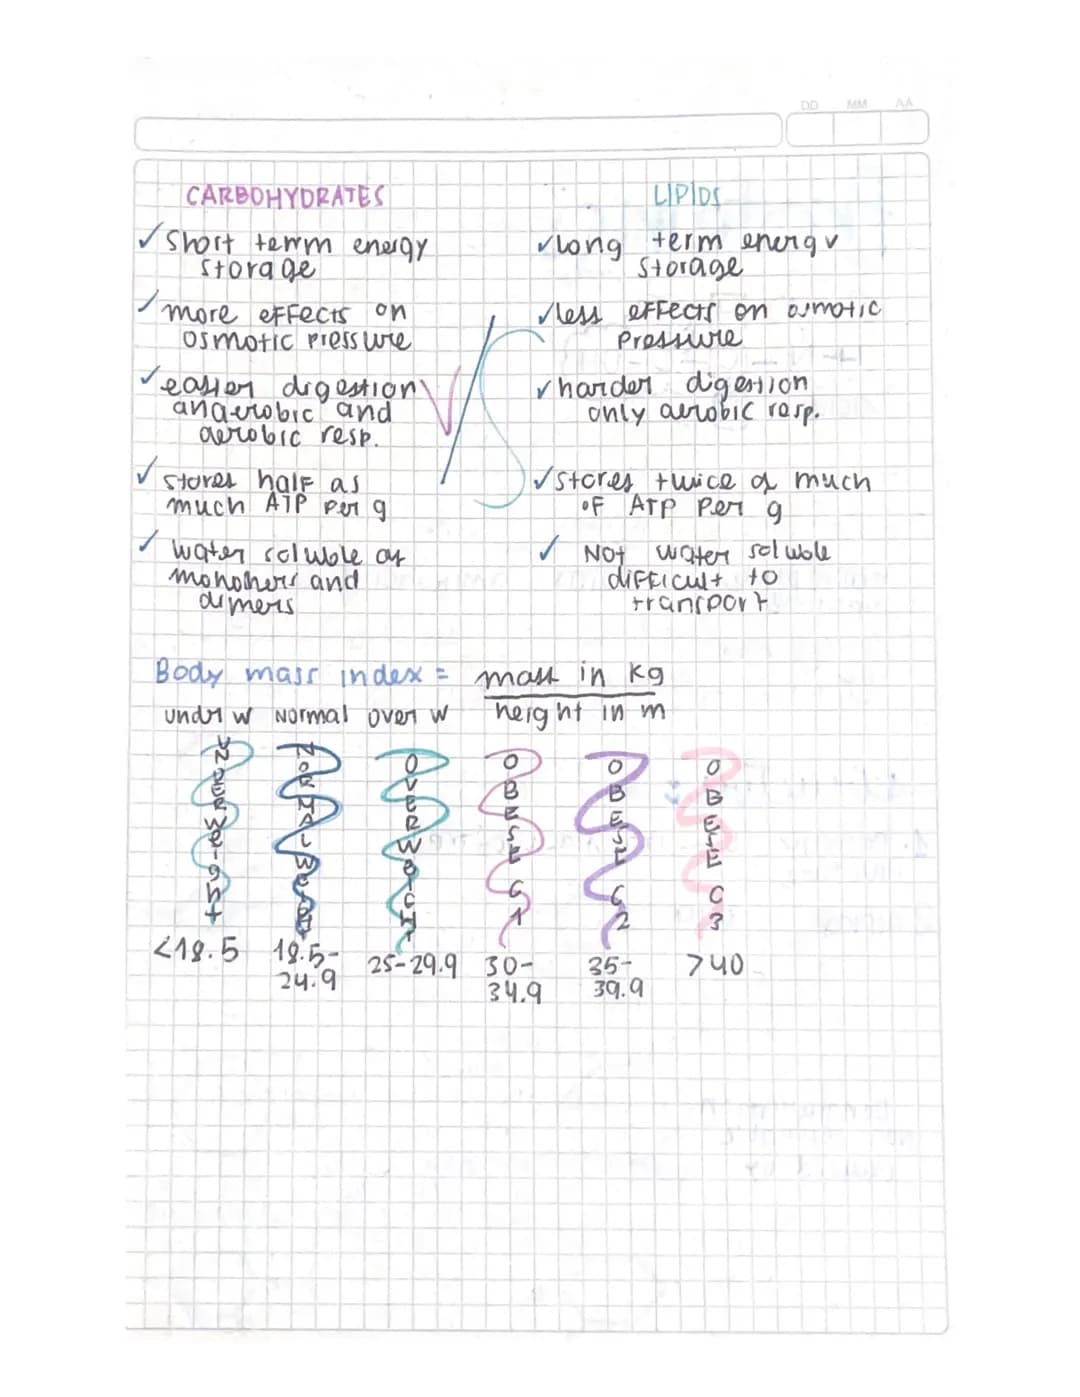 DD MM AA
CARBOHYDRATES
✓ Short term energy
storage
✓ more effects on
osmotic pressure
✓ easier digestion
anaerobic and
aerobic resp.
✓ stores half as
much ATP per g
✓ water soluble as
monomers and
dimers
VS
LIPIDS
✓ Long term energy
storage
✓ less effects on osmotic
pressure
✓ harder digestion
only aerobic resp.
✓ stores twice as much
of ATP per g
✓ Not water soluble
difficult to
transport
Body mass index = mass in kg
height in m
undr w Normal over w
UNDERWeight
NORMALWeight
OVERWeigHt
OBESE C1
OBESE C2
OBESE C3
<18.5
18.5-
24.9
25-29.9
30-
34.9
35-
39.9
>40